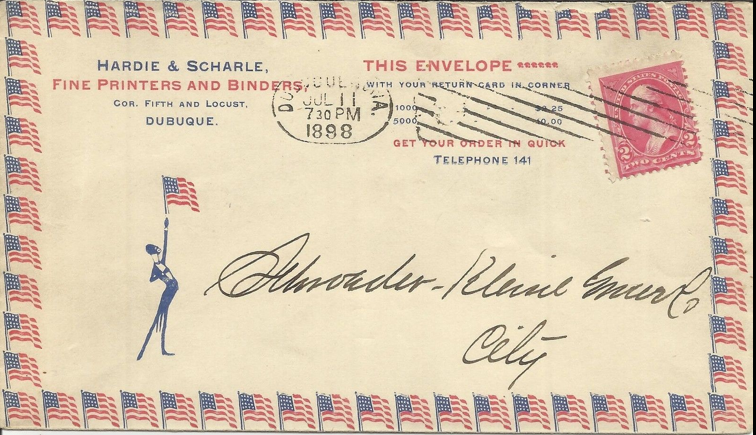 HARDIE & SCHARLE,
FINE PRINTERS AND BINDERS,
COR. FIFTH AND LOCUST,
DUBUQUE.
THIS ENVELOPE
WITH YOUR RETURN CARD IN CORNER
1000 $2.25
5000 10.00
GET YOUR ORDER IN QUICK
TELEPHONE 141
DUBUQUE, IA.
JUL 11
7 30 PM
1898
2 2
TWO CENTS
Schroeder-Kleine Grocer Co
City